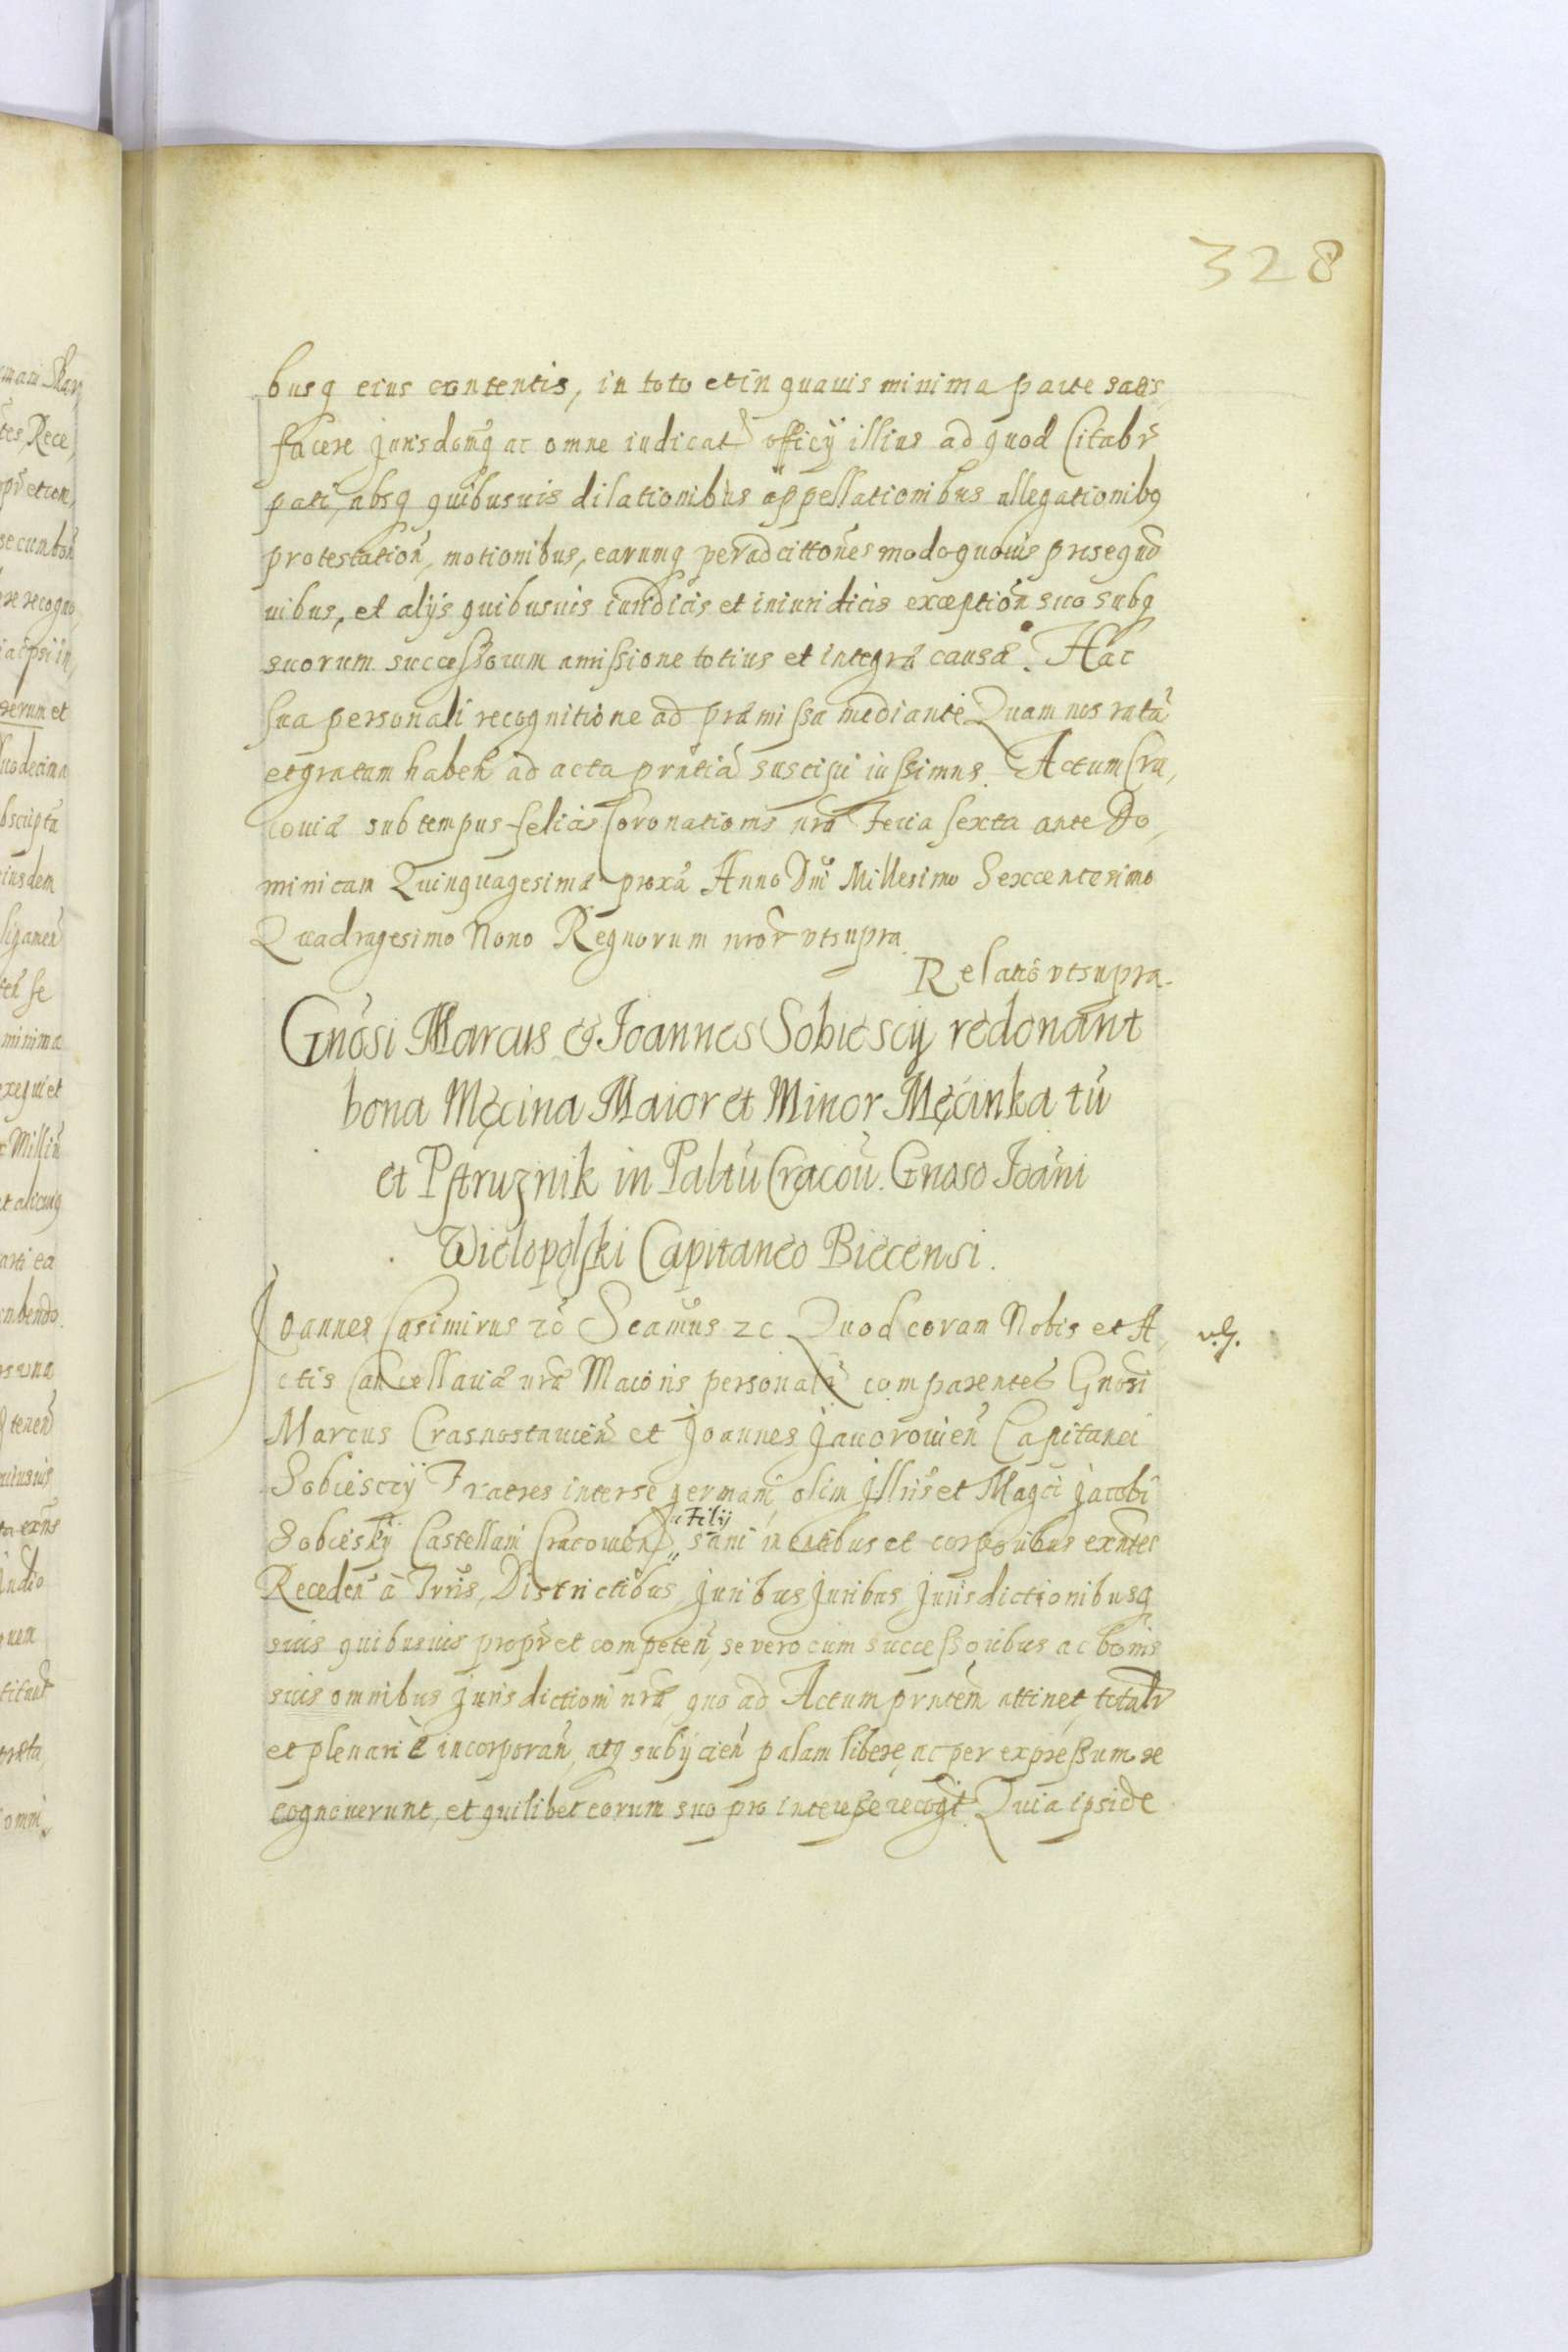 328
busq eius contentis, in toto et in quauis minima parte satis,
facere Jurisdomq ac omne iudicat officÿ illius ad quod Citabr
pati, absq quibusuis dilationibus appellationibus allegationibq
protestation, motionibus, earumq per modo quouis
uibus, et alÿs quibusuis iuridicis et iniuridicis exception suo subq
suorum successorum amissione totius et integræ causæ. Hac
sua personali recognitione ad præmissa mediante Quam nos ratã
et gratam haben ad acta prntia suscipi iussimus. Actum Cra,
couiæ sub tempus felicis Coronationis nræ Feria sexta ante Do,
minicam Quinquagesimæ proxã Anno Dni Millesimo Sexcentesimo
Quadragesimo Nono Regnorum nror vt supra
Relatio vt supra.
Gnosi Marcus & Joannes Sobiescÿ redonant
bona Męcina Maior et Minor Męcinka tũ
et Pstruznik in Paltũ Cracoũ. Gnoso Joãni
Wielopolski Capitaneo Biecensi.
Joannes Casimirus Scamus zc Quod coram Nobis et A,
ctis Cancellariæ nræ Maioris personalr comparentes Gnosi
Marcus Crasnostauien et Joannes Jauorouien Capitanei
Sobiescÿ Fratres inter se germani, olim Jllris et Magci Jacobi
Filij
Sobieskÿ Castellani Cracouien sani mentibus et corporibus exntes
Receden à Trris, Districtibus Juribus Juribus Jurisdictionibusq
suis quibusuis propr et competen, se vero cum successoribus ac bonis
suis omnibus Jurisdictioni nræ, quo ad Actum prntem attinet totalr
et plenariè incorporan, atq subÿcien palam libere, ac per expressum re
cognouerunt, et quilibet eorum suo pro interesse recogt. Quia ipsi de